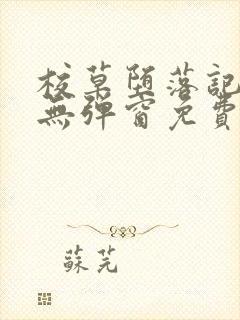 校草堕落記
無彈窗免費
蘇芫